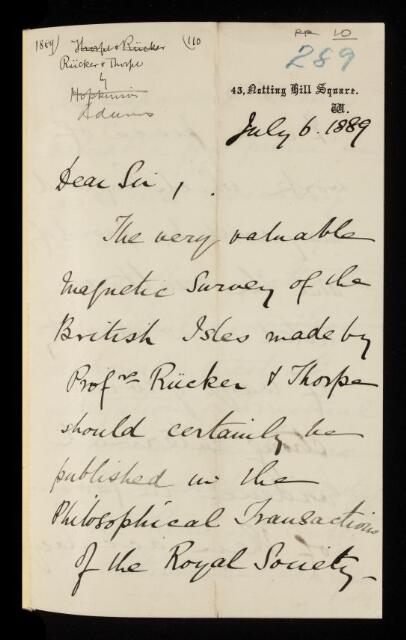 1889) Thorpe & Rücker (110
Rücker & Thorpe
by
Hopkinson
Adams
RR 10
289
43, Notting Hill Square.
W.
July 6. 1889
Dear Sir,
The very valuable
Magnetic Survey of the
British Isles made by
Profrs Rücker & Thorpe
should certainly be
published in the
Philosophical Transactions
of the Royal Society